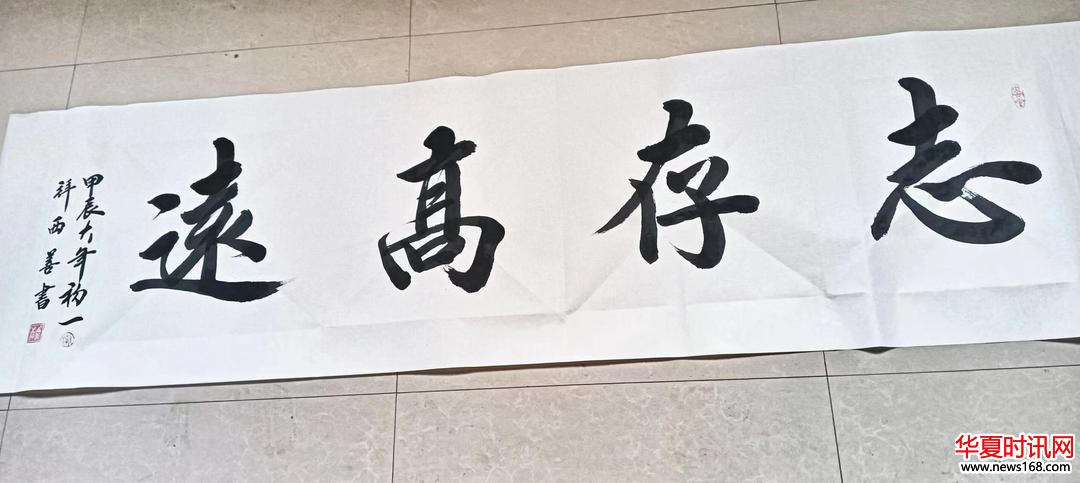 志存髙遠
甲辰大年初一
祥西善書
华夏时讯网
www.news168.com